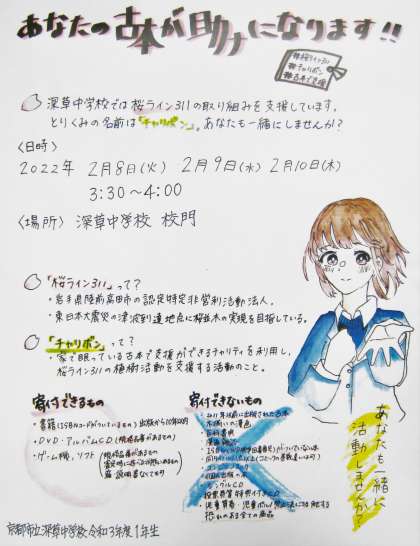 あなたの古本が助けになります!!
#桜ライン311
#チャリボン
#古本で支援
深草中学校では桜ライン311の取り組みを支援しています。
とりくみの名前は「チャリボン」。あなたも一緒にしませんか?
〈日時〉
2022年 2月8日(火) 2月9日(水) 2月10日(木)
3:30~4:00
〈場所〉 深草中学校 校門
「桜ライン311」って?
・岩手県陸前高田市の認定特定非営利活動法人。
・東日本大震災の津波到達地点に桜並木の実現を目指している。
「チャリボン」って?
・家で眠っている古本で支援ができるチャリティを利用し、
桜ライン311の植樹活動を支援する活動のこと。
寄付できるもの
・書籍(ISBNコードがついているもの)出版から10年以内
・DVD・アルバムCD(規格品番があるもの)
・ゲーム機、ソフト
寄付できないもの
・百科事典
・コンビニコミック
・個人出版の本
あなたも一緒に
活動しませんか?
京都市立深草中学校 令和3年度1年生